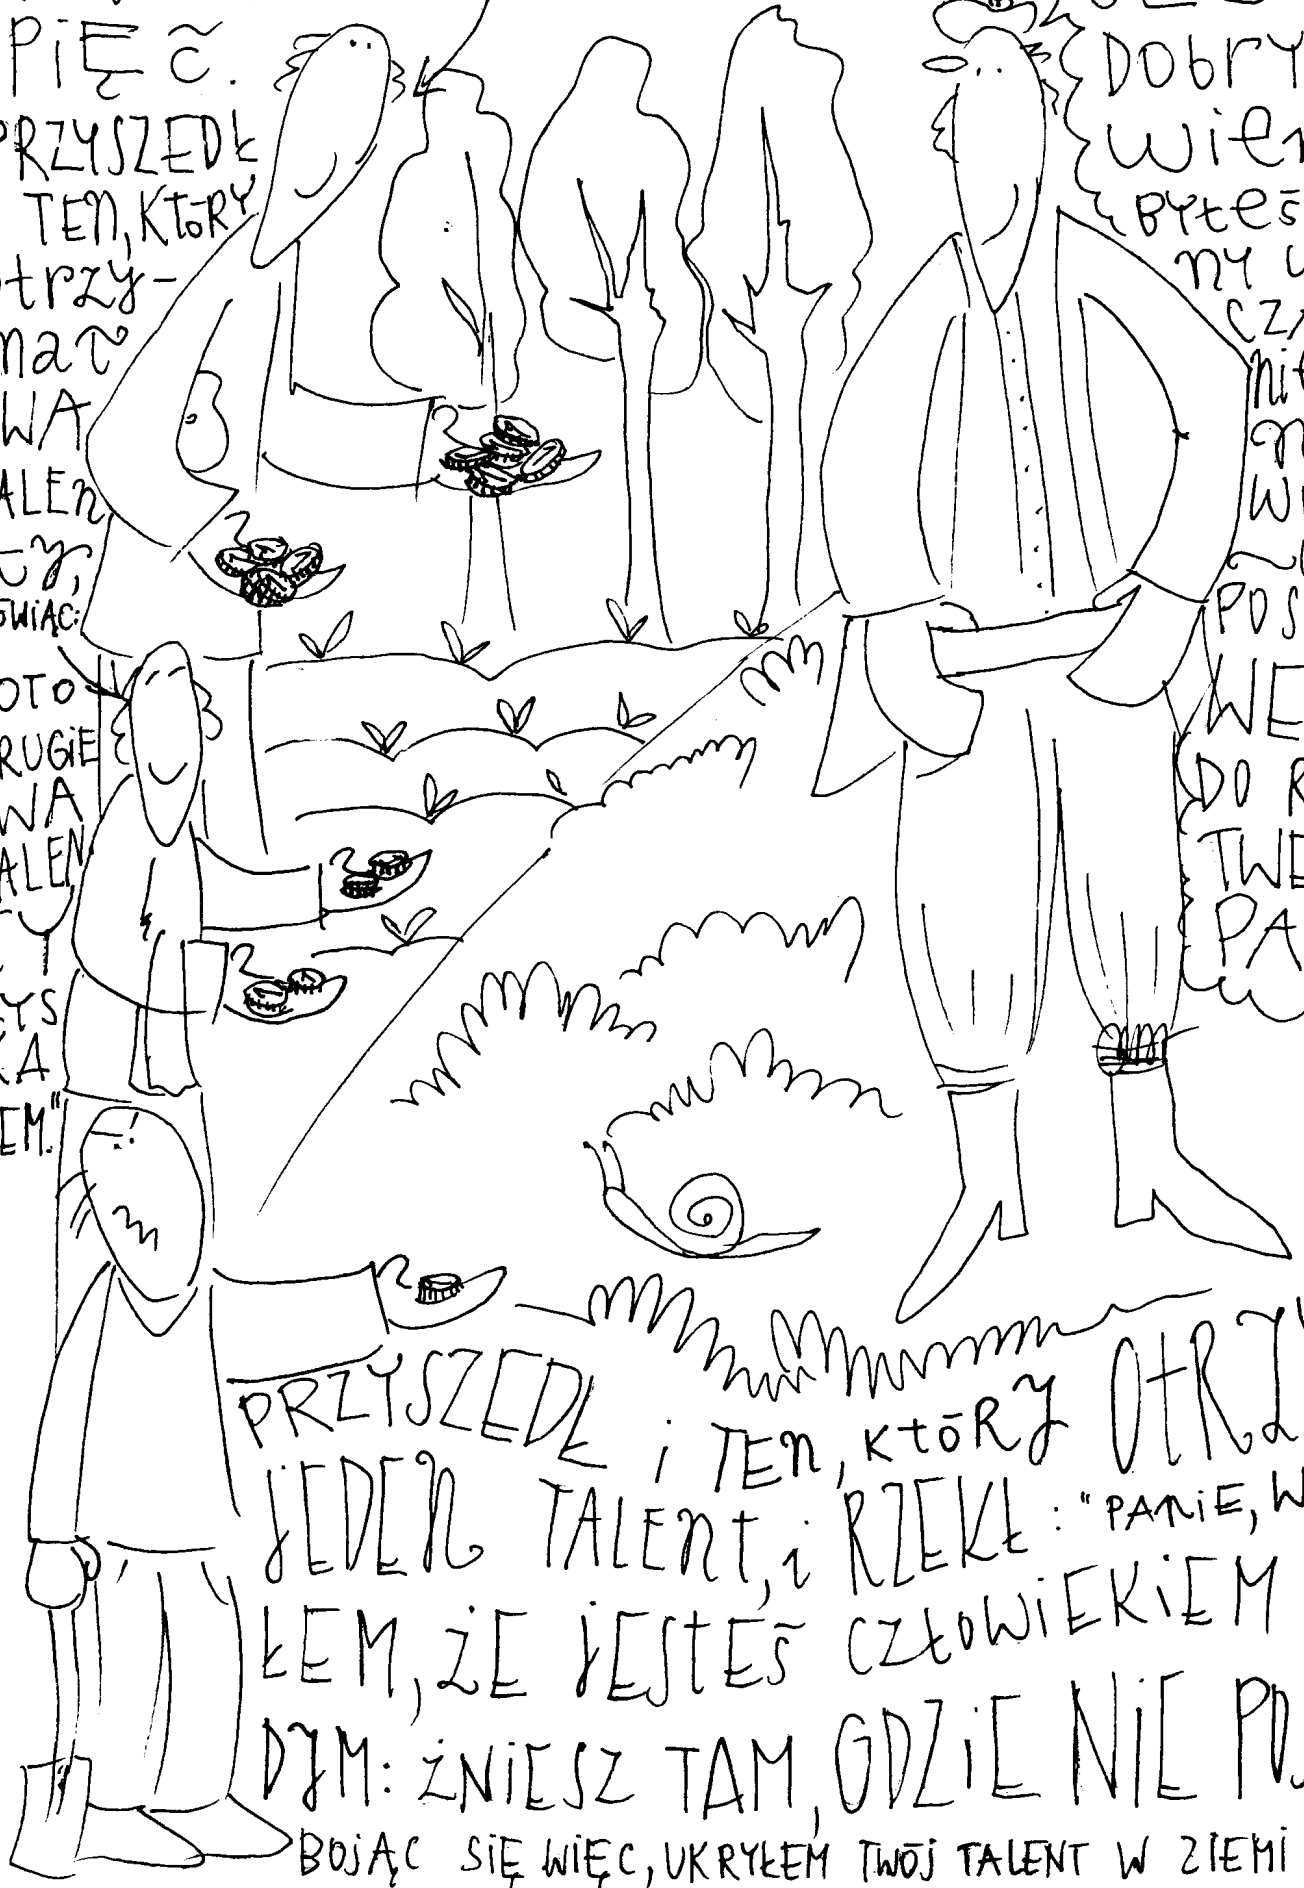 PIĘĆ.
PRZYSZEDŁ
TEN, KTÓRY
OTRZY-
MAŁ
WA
ALEN
TY,
ÓWIĄC:
OTO
RUGIE
WA
ALEN
TY
ZYS
KA
EM."
DOBRY
WIER
BYŁEŚ
NY W
CZN
NIE
N
WI
POS
WE
DO R
TWE
PA
PRZYSZEDŁ i TEN, KTÓRY OTRZY
JEDEN TALENT, i RZEKŁ: "PANiE, W
ŁEM, ŻE JESTEŚ CZŁOWiEKiEM
DYM: ŻNiESZ TAM, GDZiE NiE PO
BOJĄC SIĘ WIĘC, UKRYŁEM TWÓJ TALENT W ZIEMI